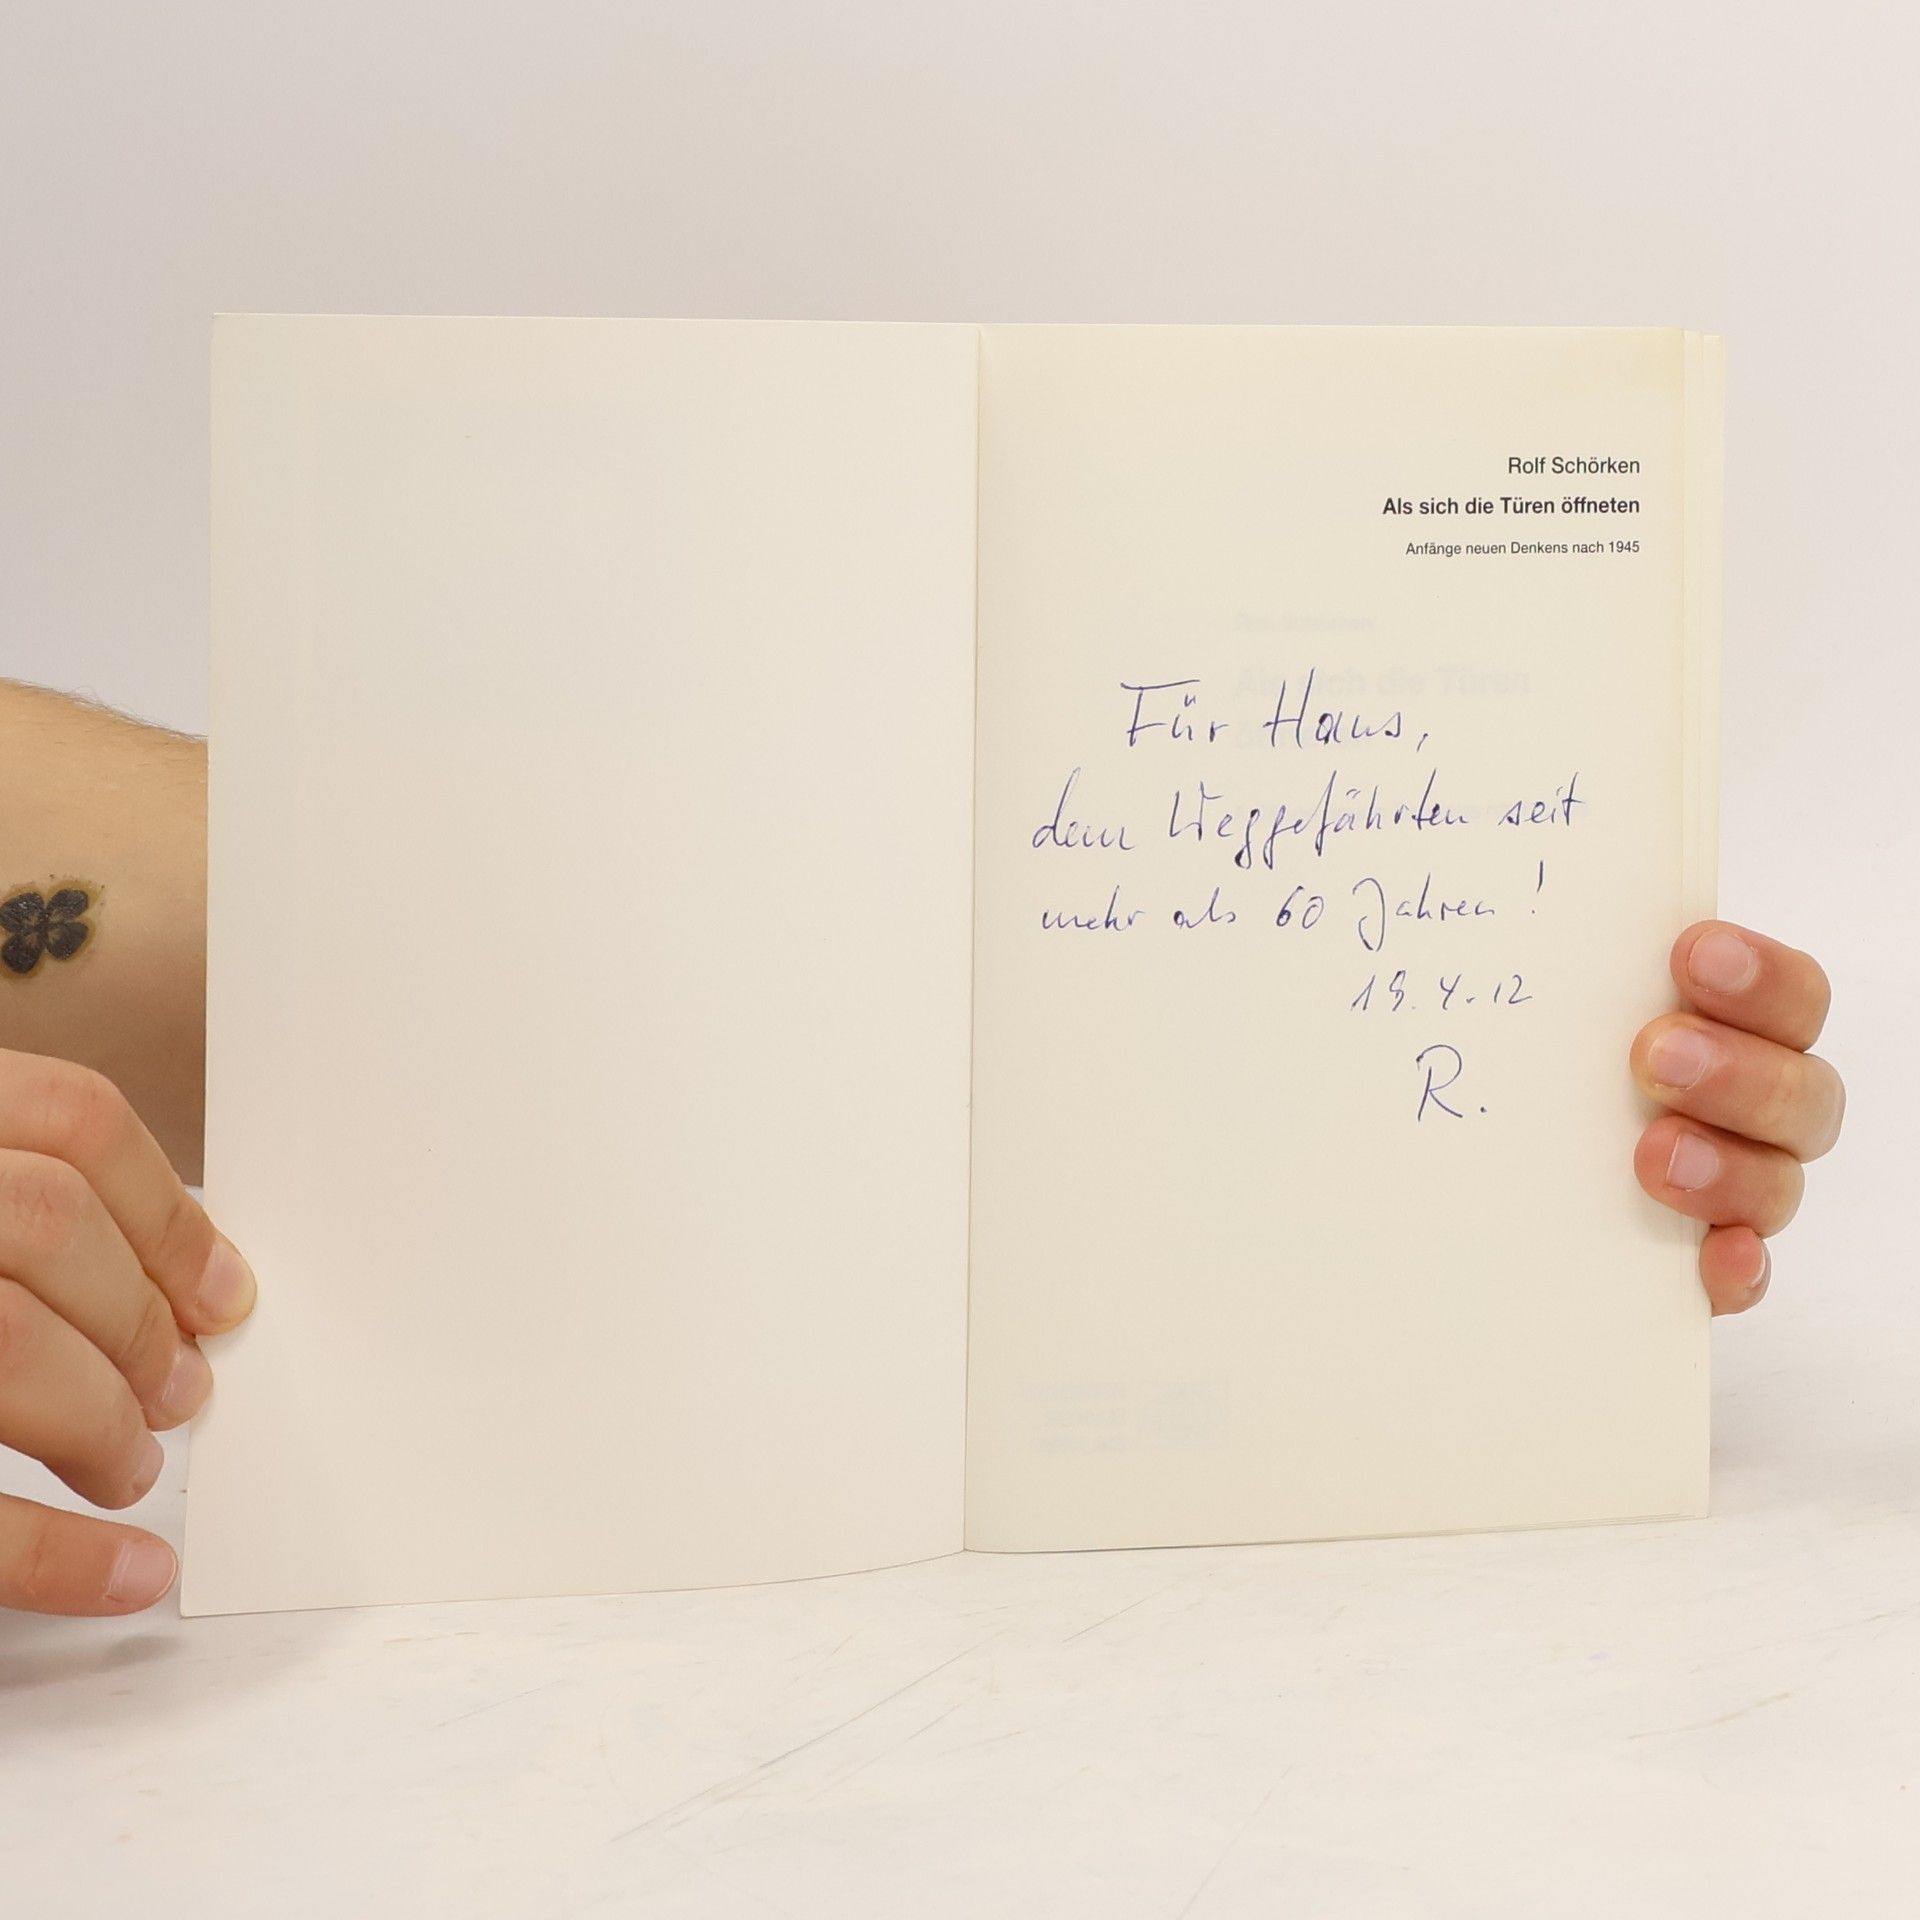 Rolf Schörken
Als sich die Türen öffneten
Anfänge neuen Denkens nach 1945
Für Hans,
dem Weggefährten seit
mehr als 60 Jahren!
19.4.12
R.